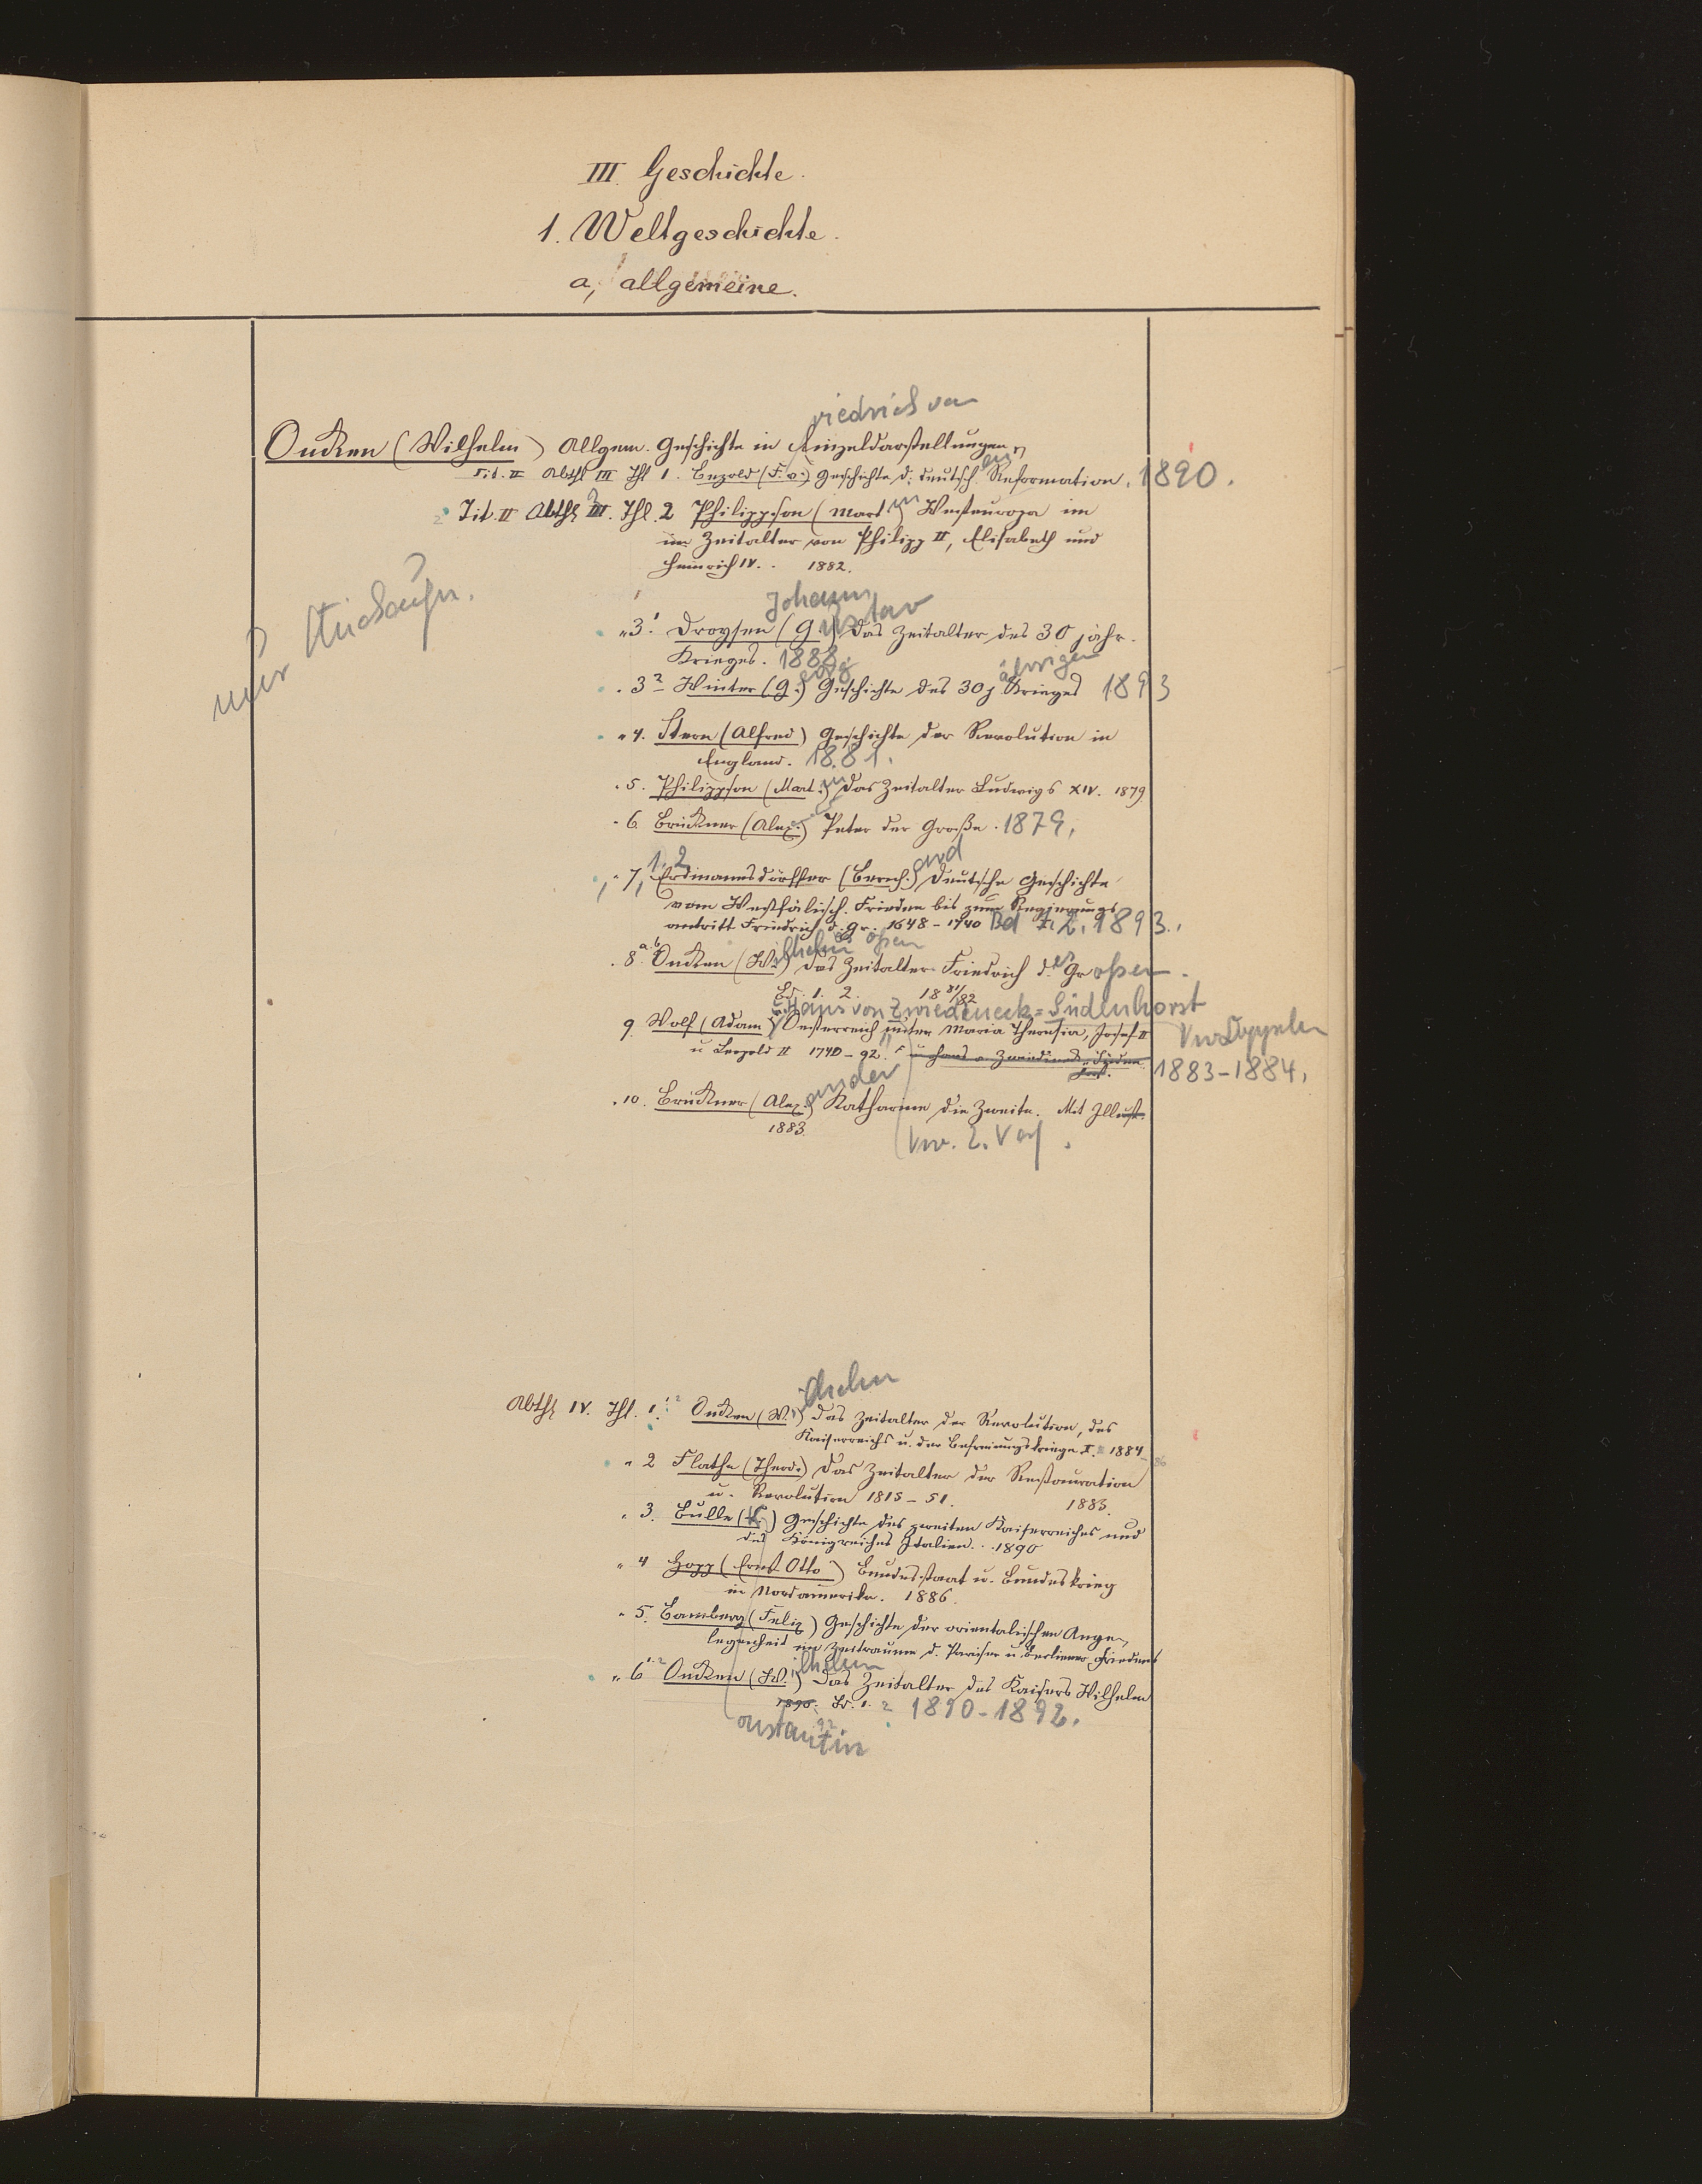 III. Geschichte.
1. Weltgeschichte.
a, allgemeine.
riedrich von
Oncken (Wilhelm) Allgem. Geschichte in Einzeldarstellungen
Tit. II Abth III Thl 1. Bezold (F. v.) Geschichte d. deutsch en Reformation. 1890.
Tit. II Abth III. Thl. 2 Philippson (Mart in) Westeuropa im
im Zeitalter von Philipp II, Elisabeth und
Heinrich IV. . 1882.
Johann
" 3.¹ Droysen (G ustav) Das Zeitalter des 30 jähr.
Krieges. 1888.
" 3² Winter (G. eorg) Geschichte des 30 j ährigen Krieges 1893
nur Stichaufn.
" 4. Stern (Alfred) Geschichte der Revolution in
England. 1881.
" 5. Philippson (Mart. in) Das Zeitalter Ludwigs XIV. 1879
" 6 Brückner (Alex.) Peter der Große. 1879.
1. 2
" 7, Erdmannsdörffer (Bernh. ard) Deutsche Geschichte
vom Westfälisch. Frieden bis zum Regierungs
antritt Friedrich d. Gr. 1648 - 1740 Bd 1. 2. 1893.
" 8 a. b Oncken (W. ilhelm) Das Zeitalter Friedrich d. es Großen.
Bd. 1. 2. 18 81/82
u. Hans von Zwiedineck=Südenhorst
9 Wolf (Adam) Oesterreich unter Maria Theresia, Josef II
u Leopold II 1740 - 92. u Hans v. Zwiedineck-Süden
horst.
1883-1884.
" 10. Brückner (Alex. ander) Katharine die Zweite. Mit Illust.
1883.
Vw. 2. Verf.
Abth IV. Thl. 1. 1.2 Oncken (W. ilhelm) Das Zeitalter der Revolution, des
Kaiserreichs u. der Befreiungskriege I. 2 1884-86
" 2 Flathe (Theod.) Das Zeitalter der Restauration
u. Revolution 1815 - 51. 1883.
" 3. Bulle (C.) Geschichte des zweiten Kaiserreiches und
des Königreiches Italien. . . 1890
" 4 Hopp (Ernst Otto) Bundesstaat u. Bundeskrieg
in Nordamerika. 1886.
" 5. Bamberg (Felix) Geschichte der orientalischen Ange-
legenheit im Zeitraume d. Pariser u. Berliner Friedens
" 6 1.2 Oncken (W. ilhelm) Das Zeitalter des Kaisers Wilhelm
1890. Bd. 1. 2 1890-1892.
92
onstantin